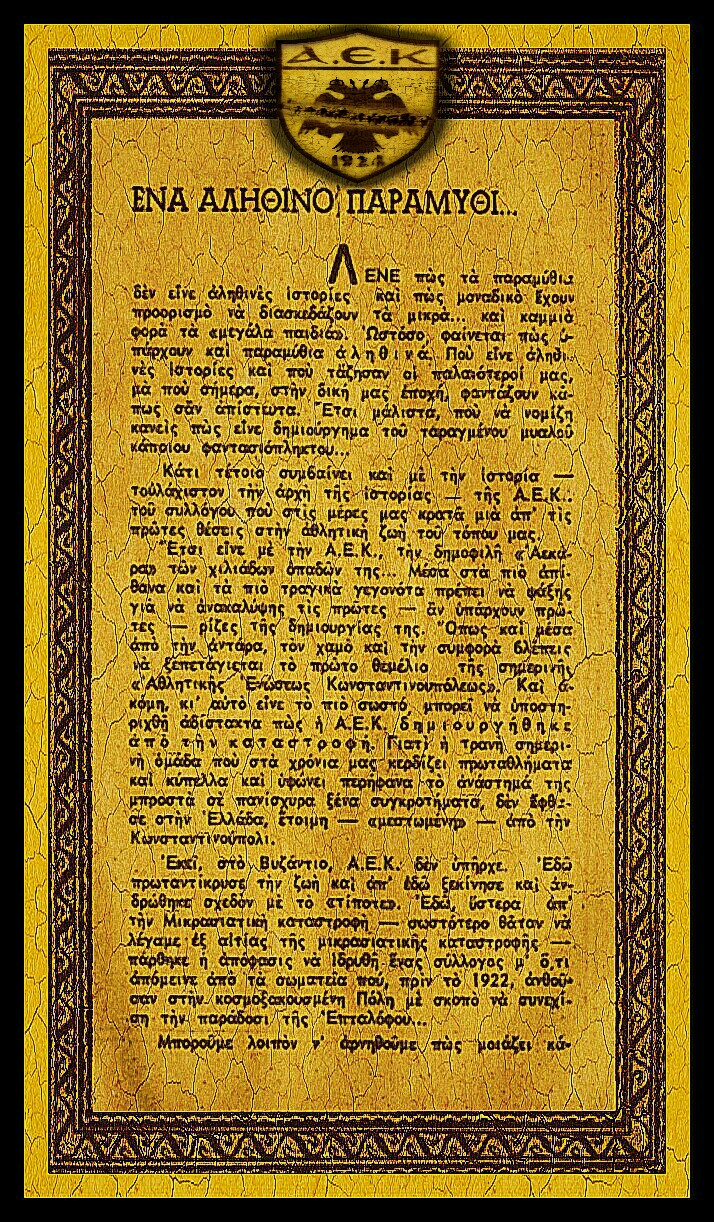 Α.Ε.Κ
1924
ΕΝΑ ΑΛΗΘΙΝΟ ΠΑΡΑΜΥΘΙ...
ΛΕΝΕ πὼς τὰ παραμύθια
δὲν εἶνε ἀληθινὲς ἱστορίες καὶ πὼς μοναδικὸ ἔχουν
προορισμὸ νὰ διασκεδάζουν τὰ μικρὰ... καὶ καμμιὰ
φορὰ τὰ «μεγάλα παιδιά». Ὡστόσο, φαίνεται πὼς ὑ-
πάρχουν καὶ παραμύθια ἀληθινά. Ποὺ εἶνε ἀληθι-
νὲς ἱστορίες καὶ ποὺ τἄζησαν οἱ παλαιότεροί μας,
μὰ ποὺ σήμερα, στὴν δική μας ἐποχή, φαντάζουν κά-
πως σὰν ἀπίστευτα. Ἔτσι μάλιστα, ποὺ νὰ νομίζῃ
κανεὶς πὼς εἶνε δημιούργημα τοῦ ταραγμένου μυαλοῦ
κάποιου φαντασιόπληκτου...
Κάτι τέτοιο συμβαίνει καὶ μὲ τὴν ἱστορία —
τοὐλάχιστον τὴν ἀρχὴ τῆς ἱστορίας — τῆς Α.Ε.Κ.:
τοῦ συλλόγου ποὺ στὶς μέρες μας κρατᾶ μιὰ ἀπ' τὶς
πρῶτες θέσεις στὴν ἀθλητικὴ ζωὴ τοῦ τόπου μας.
Ἔτσι εἶνε μὲ τὴν Α.Ε.Κ., τὴν δημοφιλῆ «Ἀεκά-
ρα» τῶν χιλιάδων ὀπαδῶν της... Μέσα στὰ πιὸ ἀπί-
θανα καὶ τὰ πιὸ τραγικὰ γεγονότα πρέπει νὰ ψάξῃς
γιὰ νὰ ἀνακαλύψῃς τὶς πρῶτες — ἂν ὑπάρχουν πρῶ-
τες — ρίζες τῆς δημιουργίας της. Ὅπως καὶ μέσα
ἀπὸ τὴν ἀντάρα, τὸν χαμὸ καὶ τὴν συμφορὰ βλέπεις
νὰ ξεπετάγεται τὸ πρῶτο θεμέλιο τῆς σημερινῆς
«Ἀθλητικῆς Ἑνώσεως Κωνσταντινουπόλεως». Καὶ ἀ-
κόμη, κι' αὐτὸ εἶνε τὸ πιὸ σωστό, μπορεῖ νὰ ὑποστη-
ριχθῆ ἀδίστακτα πὼς ἡ Α.Ε.Κ. δημιουργήθηκε
ἀπὸ τὴν καταστροφή. Γιατὶ ἡ τρανὴ σημερι-
νὴ ὁμάδα ποὺ στὰ χρόνια μας κερδίζει πρωταθλήματα
καὶ κύπελλα καὶ ὑψώνει περήφανα τὸ ἀνάστημά της
μπροστὰ σὲ πανίσχυρα ξένα συγκροτήματα, δὲν ἔφθα-
σε στὴν Ἑλλάδα, ἕτοιμη — «μεστωμένη» — ἀπὸ τὴν
Κωνσταντινούπολι.
Ἐκεῖ, στὸ Βυζάντιο, Α.Ε.Κ. δὲν ὑπῆρχε. Ἐδῶ
πρωταντίκρυσε τὴν ζωὴ καὶ ἀπ' ἐδῶ ξεκίνησε καὶ ἀν-
δρώθηκε σχεδὸν μὲ τὸ «τίποτε». Ἐδῶ, ὕστερα ἀπ'
τὴν Μικρασιατικὴ καταστροφὴ — σωστότερο θἄταν νὰ
λέγαμε ἐξ αἰτίας τῆς μικρασιατικῆς καταστροφῆς —
πάρθηκε ἡ ἀπόφασις νὰ ἱδρυθῆ ἕνας σύλλογος μ' ὅ,τι
ἀπόμεινε ἀπὸ τὰ σωματεῖα που, πρὶν τὸ 1922, ἀνθοῦ-
σαν στὴν κοσμοξακουσμένη Πόλη μὲ σκοπὸ νὰ συνεχί-
ση τὴν παράδοσι τῆς Ἑπταλόφου...
Μποροῦμε λοιπὸν ν' ἀρνηθοῦμε πὼς μοιάζει κά-